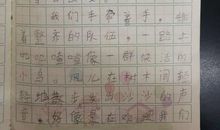 我们手牵着手，排
着整齐的队伍，一路上
叽叽喳喳像一群快活的
小鸟。风儿在树木间轻
轻地散步发出沙沙的声
音，好像是在欢迎我们